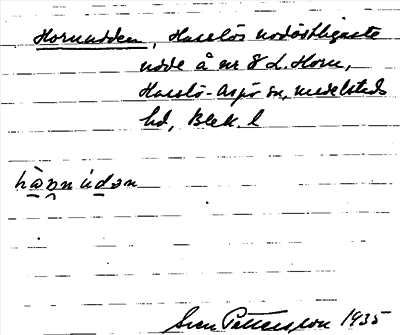 Hornudden, Hasslös nordöstligaste
udde å nr 8 L. Horn,
Hasslö-Aspö sn, medelsteds
hd, Blek. l
hὰnnúdən
Sven Pettersson 1935